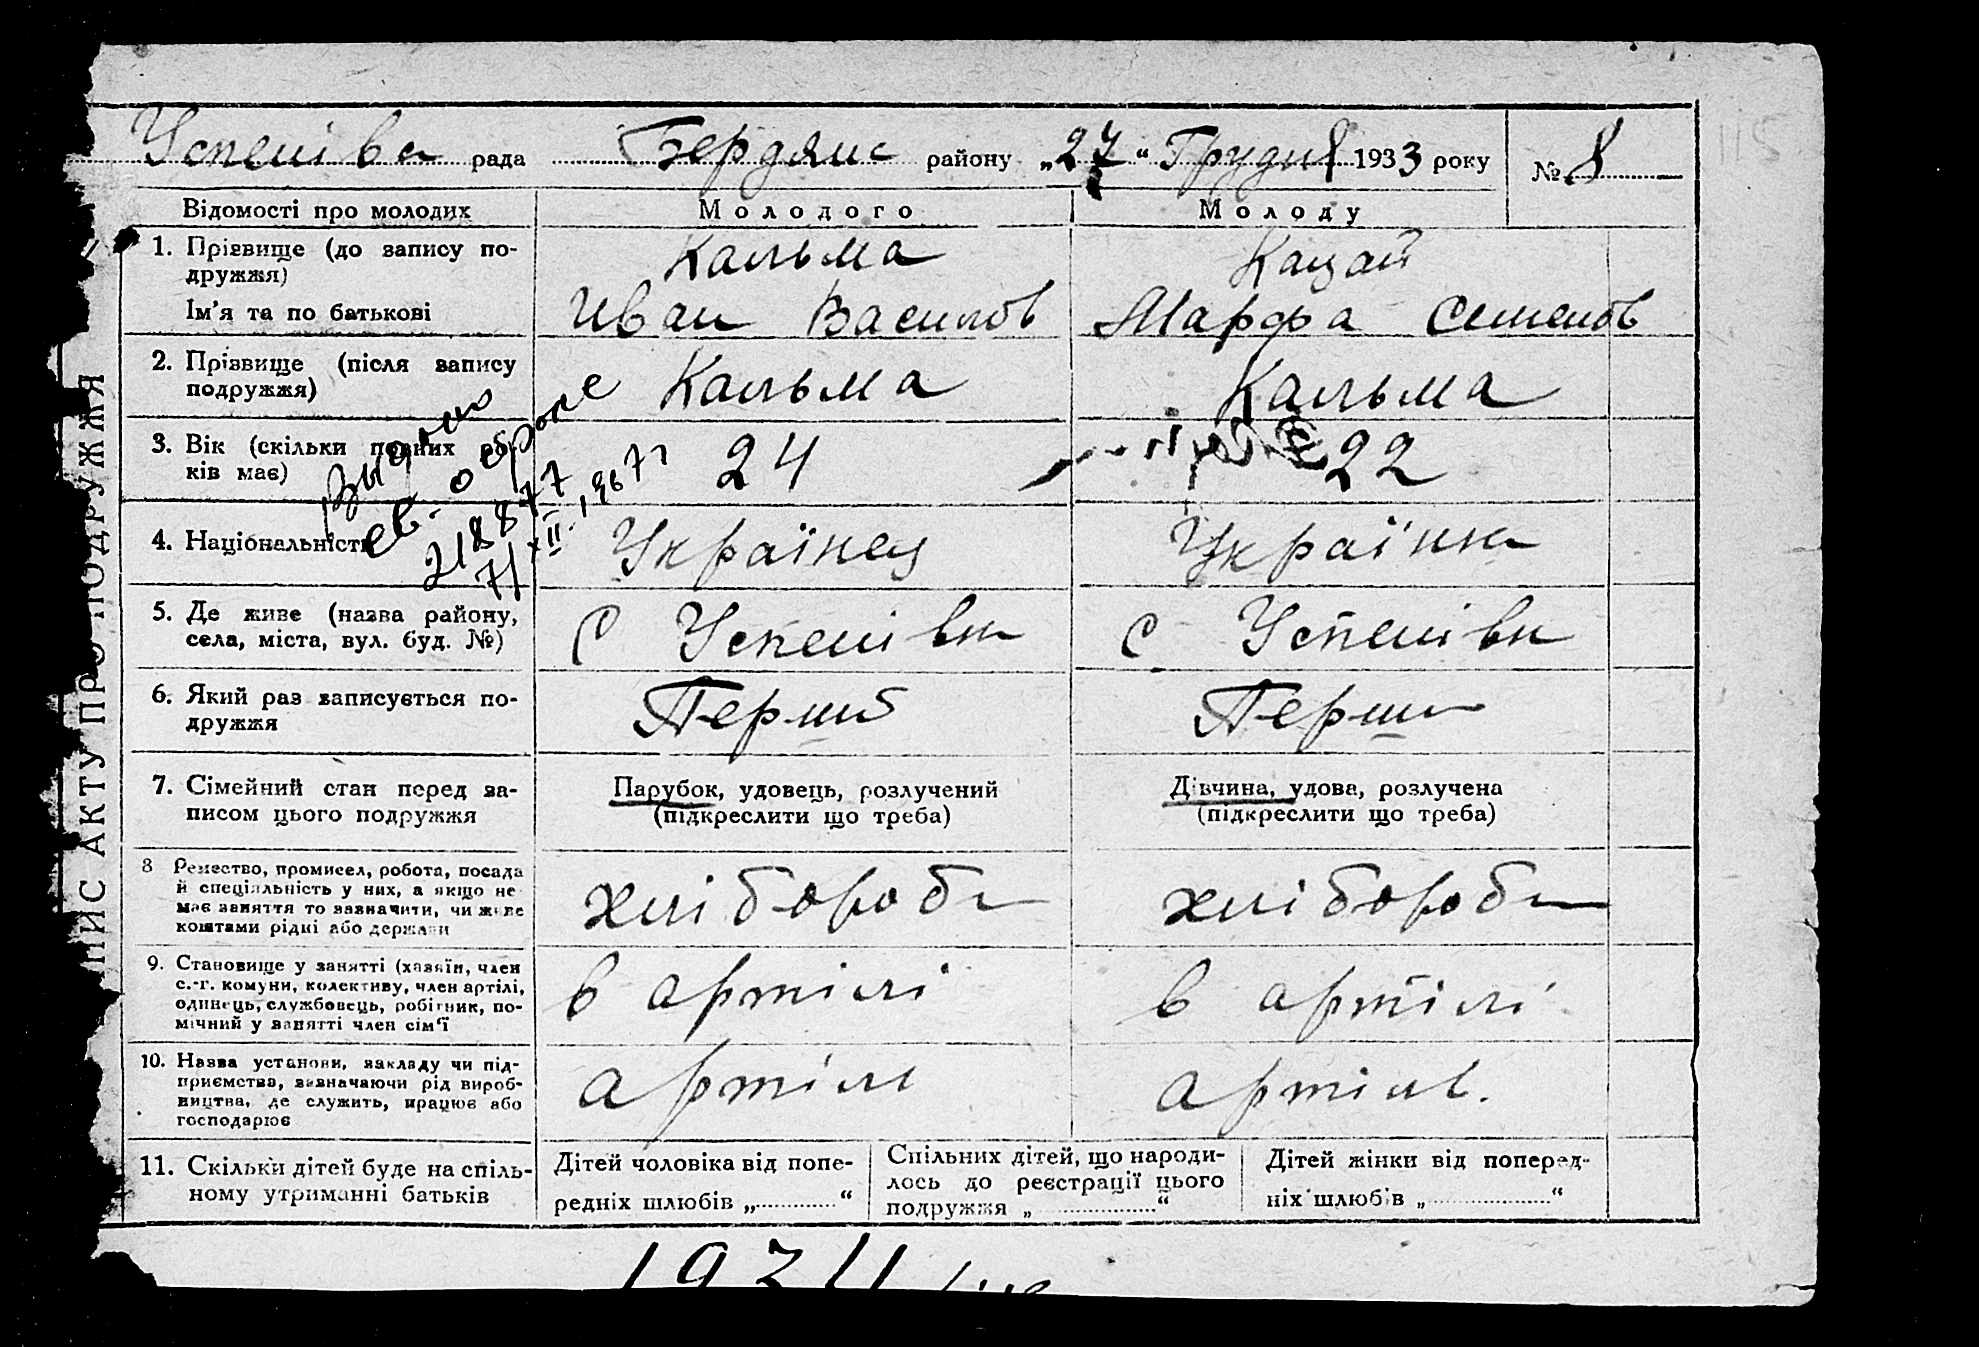 Успенівка рада Бердянс району „27“ Грудня 1933 року № 8
Відомості про молодих Молодого Молоду
1. Прізвище (до запису по-
дружжя) Кальма Кацай
Ім'я та по батькові Иван Васильов Марфа Семенов
2. Прізвище (після запису
подружжя) Кальма Кальма
3. Вік (скільки повних ро-
ків має) 24 22
4. Національність Українец Українка
5. Де живе (назва району,
села, міста, вул. буд. №) С Успенівка С Успенівка
6. Який раз записується по-
дружжя Перший Перши
7. Сімейний стан перед за-
писом цього подружжя
Парубок, удовець, розлучений
(підкреслити що треба)
Дівчина, удова, розлучена
(підкреслити що треба)
8 Ремество, промисел, робота, посада
й спеціяльність у них, а якщо не
має заняття то зазначити, чи живе
коштами рідні або держави
хлібороб хлібороб
9. Становище у занятті (хазяїн, член
с.-г. комуни, колективу, член артілі,
одинець, службовець, робітник, по-
мічний у занятті член сім'ї
в артілі в артілі
10. Назва установи, закладу чи під-
приємства, зазначаючи рід вироб-
ництва, де служить, працює або
господарює
артіль артіль.
11. Скільки дітей буде на спіль-
ному утриманні батьків
Дітей чоловіка від попе-
редніх шлюбів „ “
Спільних дітей, що народи-
лось до реєстрації цього
подружжя „ “
Дітей жінки від поперед-
ніх шлюбів „ “
Выдано
св. о
7/XII.
ПИС АКТУ ПРО ПОДРУЖЖЯ